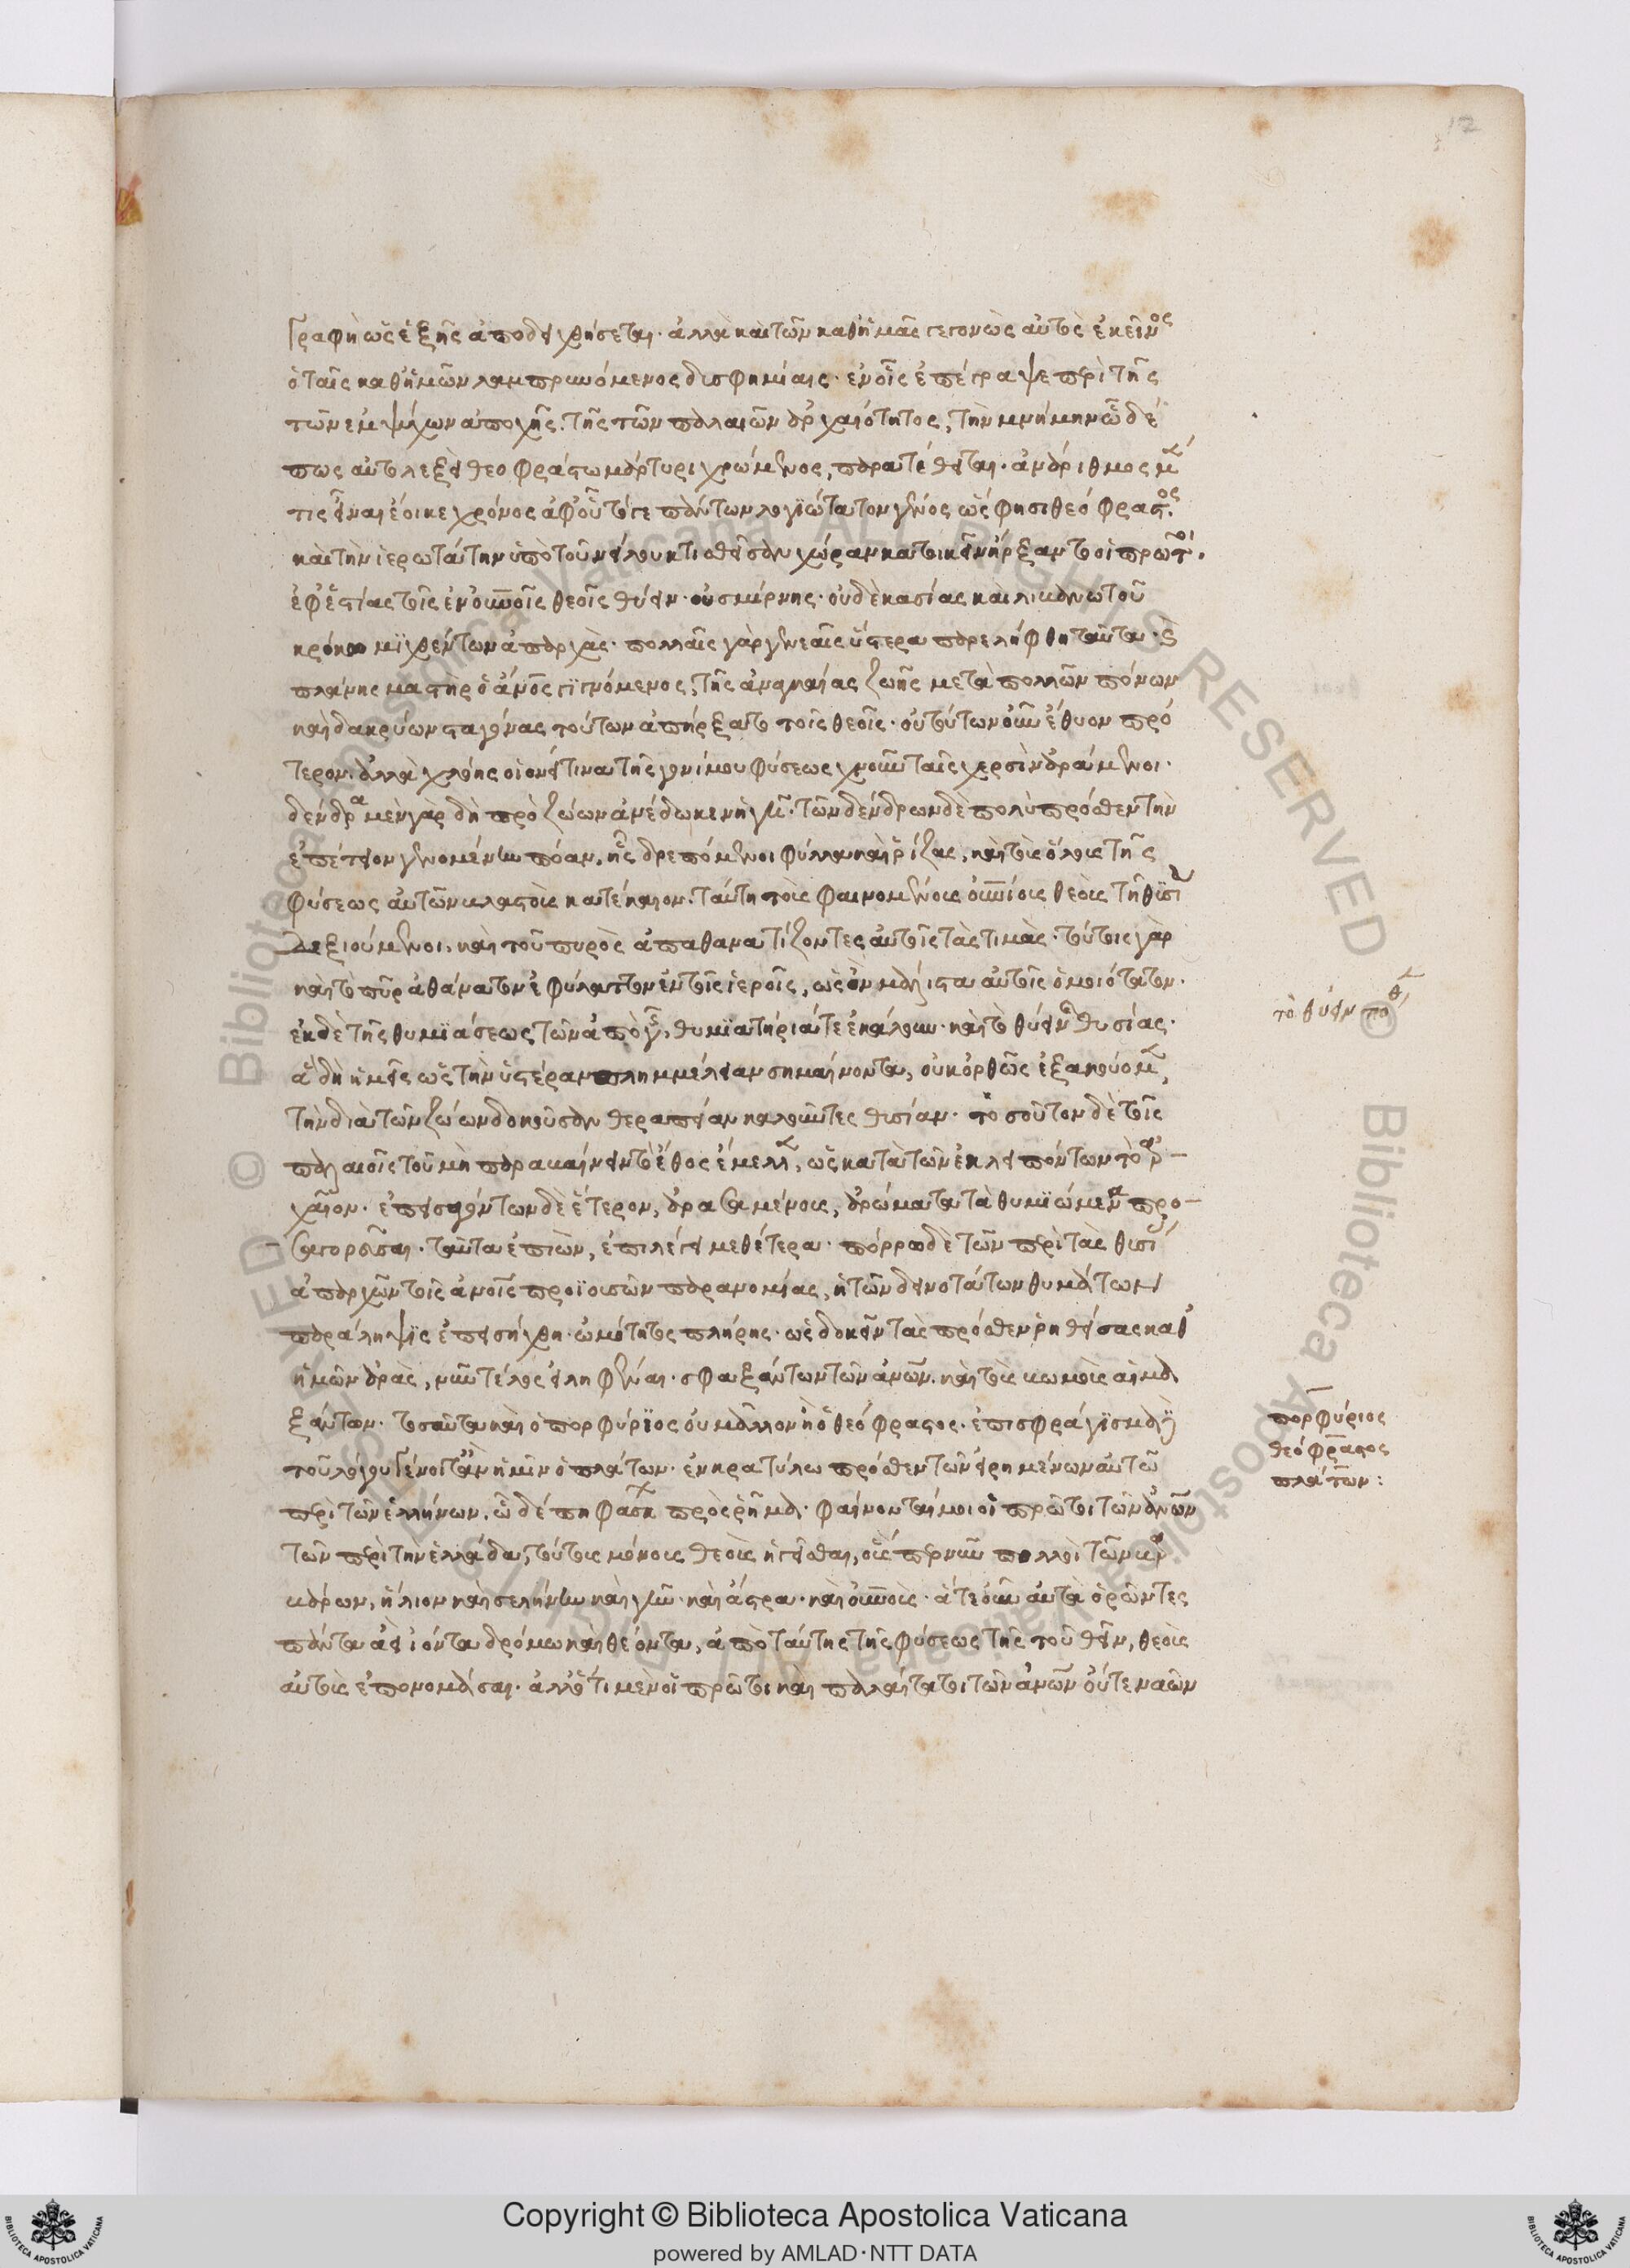 17
γραφὴ ὡς ἑξῆς ἀποδειχθήσεται· ἀλλὰ καὶ τῶν καθ' ἡμᾶς γεγονὼς αὐτὸς ἐκεῖνος
ὁ ταῖς καθ' ἡμῶν λαμπρυνόμενος δυσφημίαις· ἐν οἷς ἐπέγραψε περὶ τῆς
τῶν ἐμψύχων ἀποχῆς. τῆς τῶν παλαιῶν ἀρχαιότητος, τὴν μνήμην ὧδέ
πως αὐτολεξεὶ θεοφράστω μάρτυρι χρώμενος, παρατέθειται· ἀνάριθμος μέν
τις εἶναι ἔοικε χρόνος ἀφ' οὗ τό γε πάντων λογϊώτατον γένος ὥς φησι θεόφραστος·
καὶ τὴν ἱερωτάτην ὑπὸ τοῦ νείλου κτισθεῖσαν χώραν κατοικεῖν ἤρξαντο οἱ πρῶτοι.
ἐφ' ἑστίας τοῖς ἐν οὐνοῖς θεοῖς θύειν· οὐ σμύρνης· οὐδὲ κασίας καὶ λιβανωτοῦ
κρόκω μϊχθέντων ἀπαρχάς· πολλαῖς γὰρ γενεαῖς ὕστερα παρελήφθη ταῦτα· καὶ
πλάνης μαστὴρ ὁ ἄνος γϊγνόμενος, τῆς ἀναγκαίας ζωῆς μετὰ πολλῶν πόνων
καὶ δακρύων σταγόνας τούτων ἀπήρξατο τοῖς θεοῖς· οὐ τούτων οὖν ἔθυον πρό
τερον. ἀλλὰ χλόης οἱονεί τινα τῆς γονίμου φύσεως χνοῦν ταῖς χερσὶν ἀράμενοι·
δένδρα μὲν γὰρ δὴ πρὸ ζώων ἀνέδωκεν ἡ γῆ· τῶν δένδρων δὲ πολὺ πρόσθεν τὴν
ἐπέτειον γενομένην πόαν, ἧς δρεπόμενοι φύλλα καὶ ῥίζας, καὶ τοὺς ὅλους τῆς
φύσεως αὐτῶν βλαστοὺς κατέκαιον. ταύτη τοὺς φαινομένους οὐνίους θεοὺς τῆ θϋσία
δεξιούμενοι, καὶ τοῦ πυρὸς ἀπαθανατίζοντες αὐτοῖς τὰς τιμάς· τούτοις γὰρ
καὶ τὸ πῦρ ἀθάνατον ἐφύλαττον ἐν τοῖς ἱεροῖς, ὡς ὂν μάλιστα αὐτοῖς ὁμοιότατον.
ἐκ δὲ τῆς θυμϊάσεως τῶν ἀπὸ γῆς, θυμϊατήριά τε ἐκάλουν· καὶ τὸ θύειν καὶ θυσίας·
ἃ δὴ ἡμεῖς ὡς τὴν ὑστέραν πλημμέλειαν σημαίνοντα, οὐκ ὀρθῶς ἐξακούομεν,
τὴν διὰ τῶν ζώων δοκοῦσαν θεραπείαν καλοῦντες θυσίαν· τοσοῦτον δὲ τοῖς
παλαιοῖς τοῦ μὴ παραβαίνειν τὸ ἔθος ἔμελλεν, ὡς κατὰ τῶν ἐκλειπόντων τὸ ἀρ-
χαῖον· ἐπεισαγόντων δὲ ἕτερον, ἀρασαμένους, ἀρώματα τὰ θυμϊώμενα προ-
σαγορεῦσαι· ταῦτα ἐπιὼν, ἐπιλέγει μεθ' ἕτερα· πόρρω δὲ τῶν περὶ τὰς θυσίας
ἀπαρχῶν τοῖς ἀνοῖς προϊουσῶν παρανομίας, ἡ τῶν δεινοτάτων θυμάτων
παράληψϊς ἐπεισήχθη· ὠμότητος πλήρης· ὡς δοκεῖν τὰς πρόσθεν ῥηθείσας καθ'
ἡμῶν ἀρὰς, νῦν τέλος εἰληφέναι· σφαξάντων τῶν ἀνων. καὶ τοὺς βωμοὺς αἱμα
ξάντων· τοσαῦτα καὶ ὁ πορφύρϊος οὐ μᾶλλον ἢ ὁ θεόφραστος. ἐπισφράγϊσμα δὲ
τοῦ λόγου γένοιτ' ἂν ἡμῖν ὁ πλάτων· ἐν κρατύλω πρόσθεν τῶν εἰρημένων αὐτῶ
περὶ τῶν ἑλλήνων. ὧδέ πη φάσκων πρὸς ῥῆμα· φαίνονταί μοι οἱ πρῶτοι τῶν ἀνων
τῶν περὶ τὴν ἑλλάδα, τούτους μόνους θεοὺς ἡγεῖσθαι, οὕσπερ νῦν πολλοὶ τῶν βαρ
βάρων, ἥλιον καὶ σελήνην καὶ γῆν· καὶ ἄστρα· καὶ οὐνούς· ἅτε οὖν αὐτὰ ὁρῶντες
πάντα ἀεὶ ἰόντα δρόμω καὶ θέοντα, ἀπὸ ταύτης τῆς φύσεως τῆς τοῦ θεῖν, θεοὺς
αὐτοὺς ἐπονομάσαι· ἀλλ' ὅτι μὲν οἱ πρῶτοι καὶ παλαίτατοι τῶν ἀνων οὔτε ναῶν
τὸ θύειν πόθεν
πορφύριος
θεόφραστος
πλάτων:
Copyright © Biblioteca Apostolica Vaticana
powered by AMLAD·NTT DATA